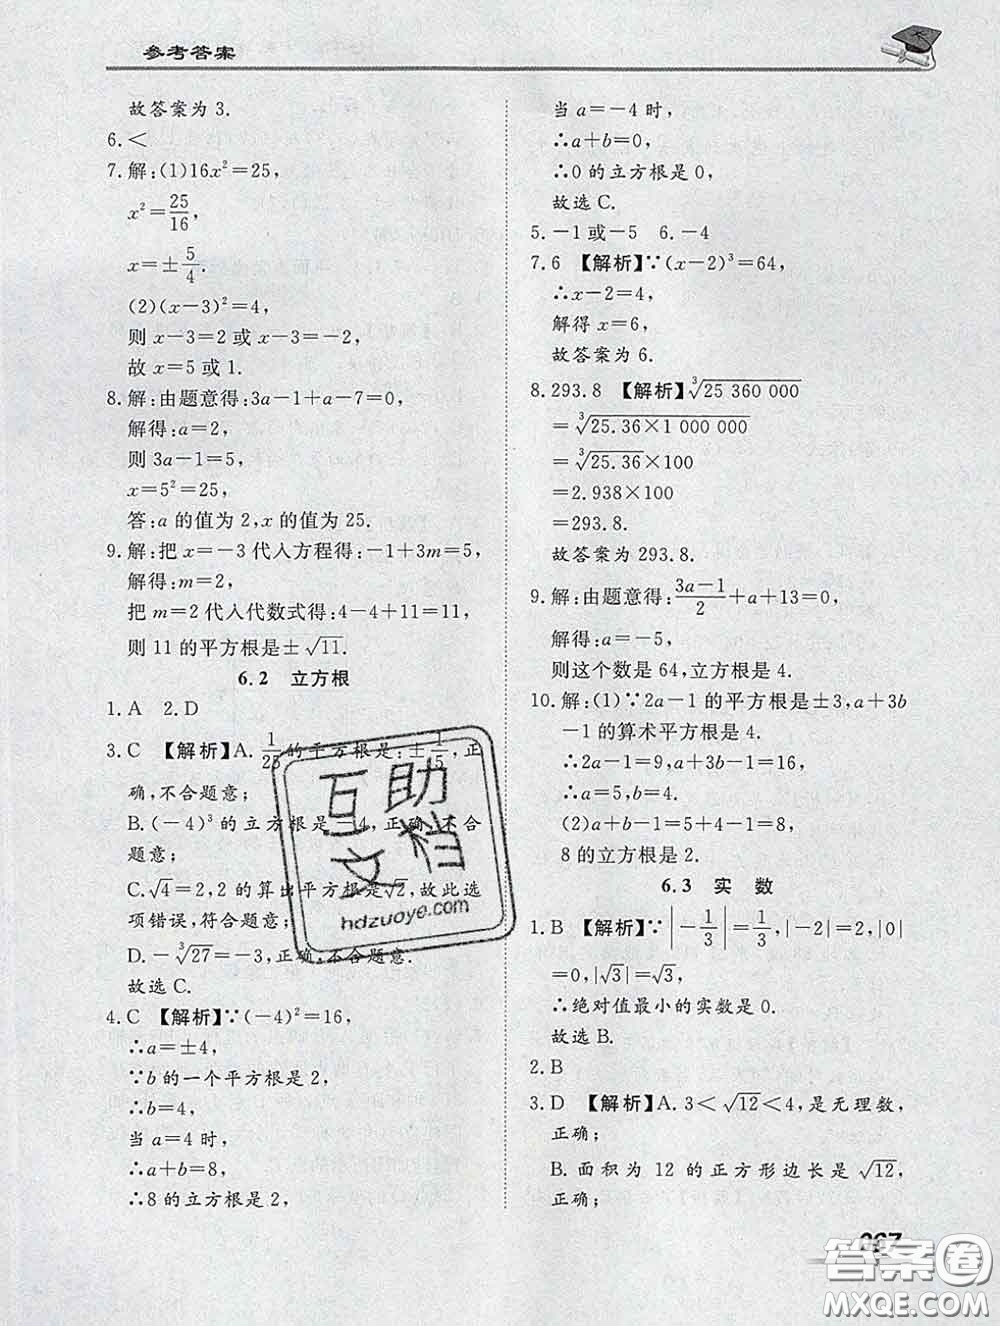 参考答案
故答案为 3.
6.<
7.解:(1)16x²=25,
x²=25/16,
x=±5/4.
(2)(x-3)²=4,
则 x-3=2 或 x-3=-2,
故 x=5或1.
8.解:由题意得:3a-1+a-7=0,
解得:a=2,
则 3a-1=5,
x=5²=25,
答:a 的值为 2,x 的值为 25.
9.解:把 x=-3 代入方程得:-1+3m=5,
解得:m=2,
把 m=2代入代数式得:4-4+11=11,
则 11 的平方根是±√11.
6.2 立方根
1.A 2.D
3.C 【解析】A.1/25的平方根是:±1/5,正
确,不合题意;
B.(-4)³ 的立方根是-4,正确,不合
题意;
C.√4=2,2 的算术平方根是√2,故此选
项错误,符合题意;
D.-∛27=-3,正确,不合题意.
故选 C.
4.C 【解析】∵(-4)²=16,
∴a=±4,
∵b 的一个平方根是 2,
∴b=4,
当 a=4 时,
∴a+b=8,
∴8 的立方根是 2,
当 a=-4 时,
∴a+b=0,
∴0 的立方根是 0,
故选 C.
5.-1或-5 6.-4
7.6 【解析】∵(x-2)³=64,
∴x-2=4,
解得 x=6,
故答案为 6.
8.293.8 【解析】∛25 360 000
=∛25.36×1 000 000
=∛25.36×100
=2.938×100
=293.8.
故答案为 293.8.
9.解:由题意得:(3a-1)/2+a+13=0,
解得:a=-5,
则这个数是 64,立方根是 4.
10.解:(1)∵2a-1 的平方根是±3,a+3b
-1 的算术平方根是 4.
∴2a-1=9,a+3b-1=16,
∴a=5,b=4.
(2)a+b-1=5+4-1=8,
8 的立方根是 2.
6.3 实 数
1.B 【解析】∵|-1/3|=1/3,|-2|=2,|0|
=0,|√3|=√3,
∴绝对值最小的实数是 0.
故选 B.
2.B
3.D 【解析】A.3<√12<4,是无理数,
正确;
B.面积为 12 的正方形边长是√12,
正确;
互助
文档
hdzuoye.com
答案圈
MXQE.COM